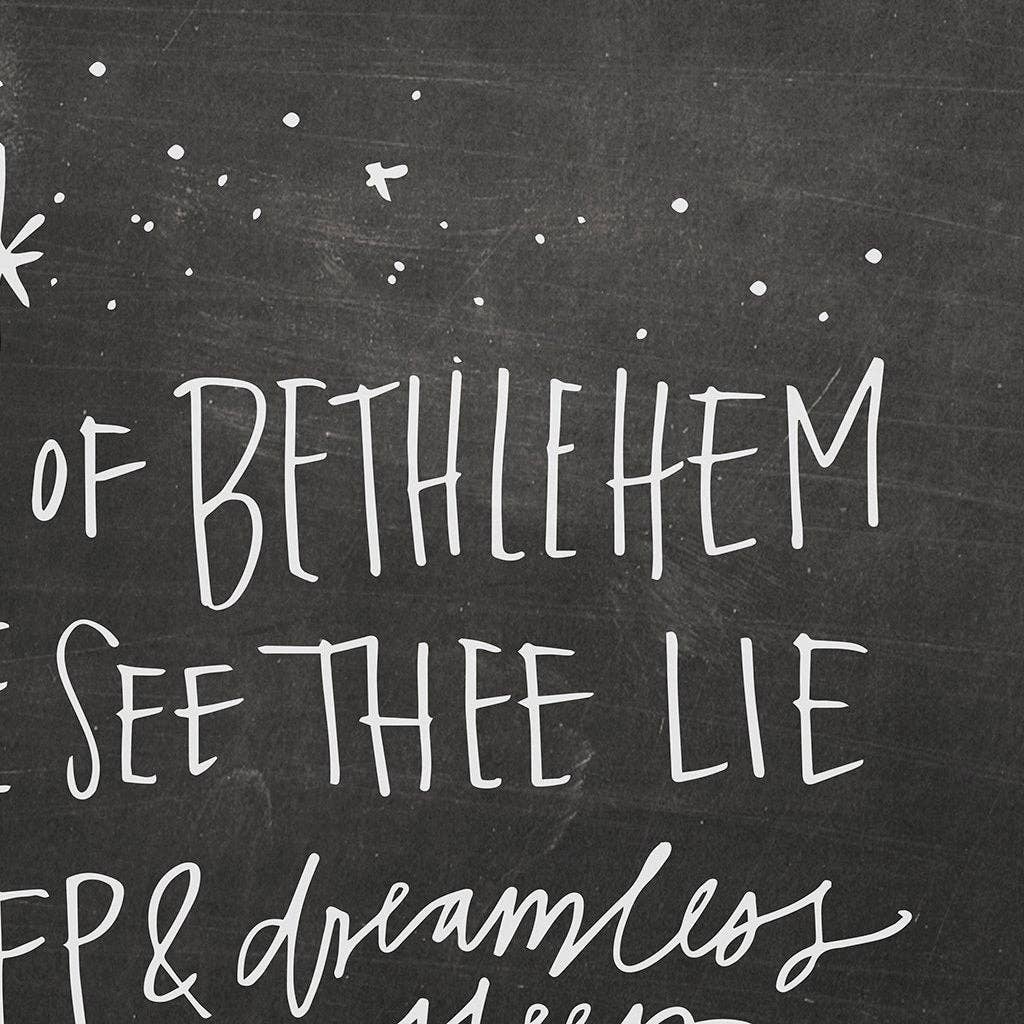 OF BETHLEHEM
SEE THEE LIE
& dreamless
sleep